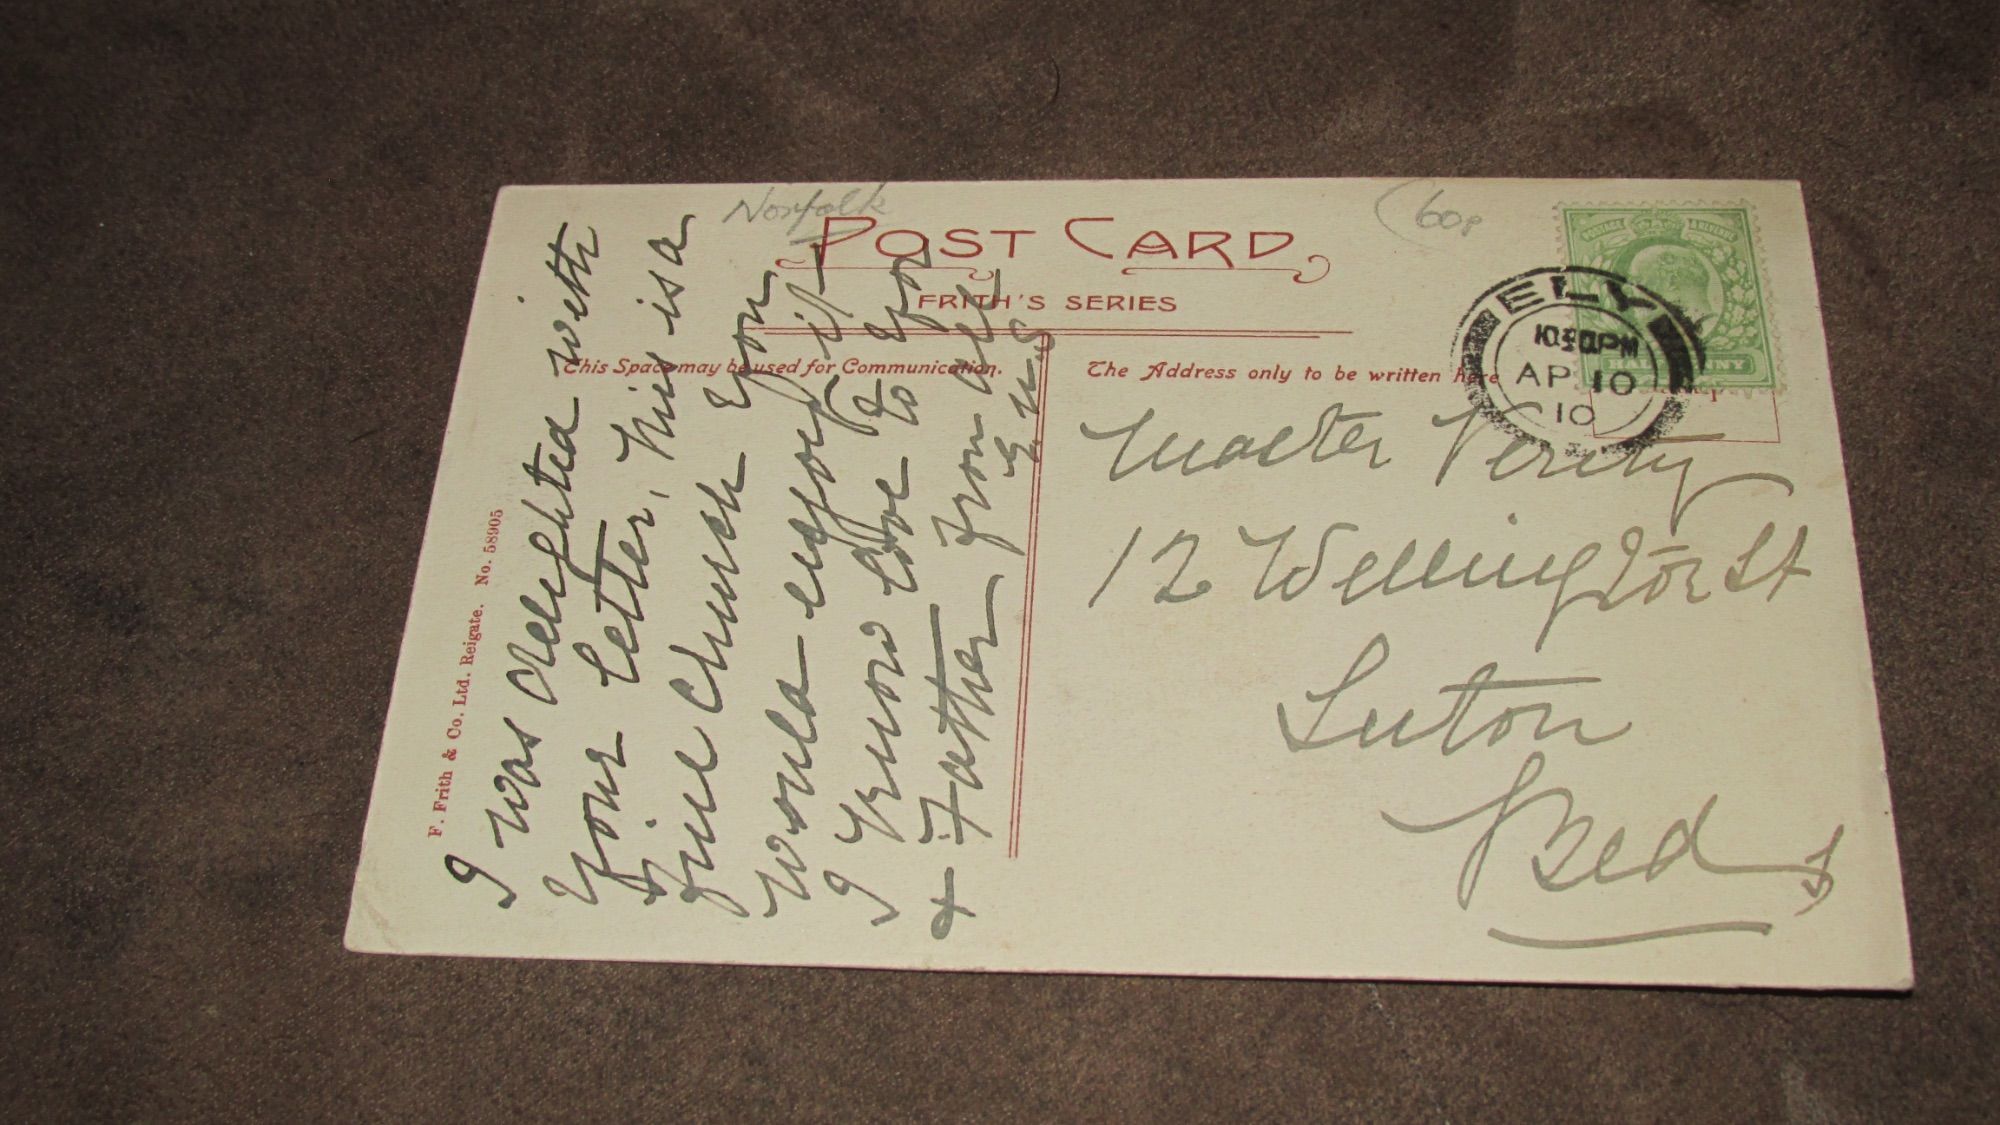 Norfolk
60p
POST CARD
FRITH'S SERIES
This Space may be used for Communication.
The Address only to be written here
F. Frith & Co. Ltd. Reigate. No. 58905
I was delighted with
your letter, this is a
fine church you
would enjoy it
I know love to you
& Father from all
E.W.S
ELY
PM
AP 10
10
Master Verity
12 Wellington St
Luton
Beds